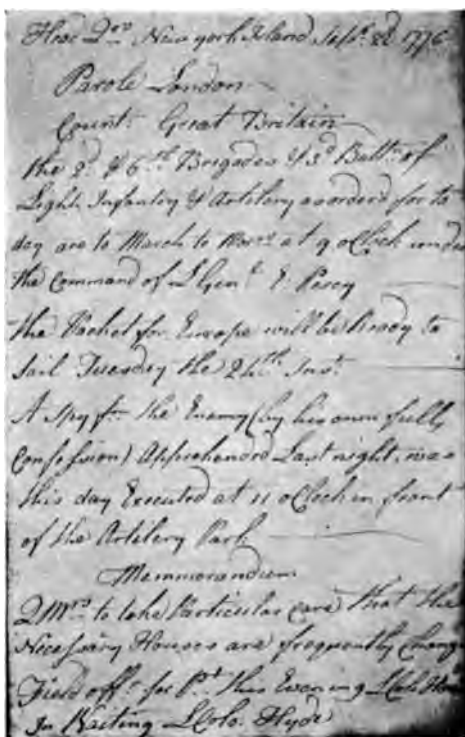 Head Qrs New york Island Sepr. 22d 1776
Parole London
Countn. Great Britain
the 2d & 6th Brigades & 3d Battn of
Light Infantry & Artilery as orderd for to
day are to March to Morrw at 9 o Clock under
the Command of L Genl. E. Percy
the Packet for Europe will be Ready to
sail Tuesday the 24th. Inst.
A Spy fm. the Enemy (by his own full
Confession) Apprehended Last night, was
this day Executed at 11 o Clock in front
of the Artilery Park
Memmorandum
QMrs to take Particular care that the
Necessary Houses are frequently Chang
Field offr. for Pt. this Evening LColo
In Waiting LColo. Hyde